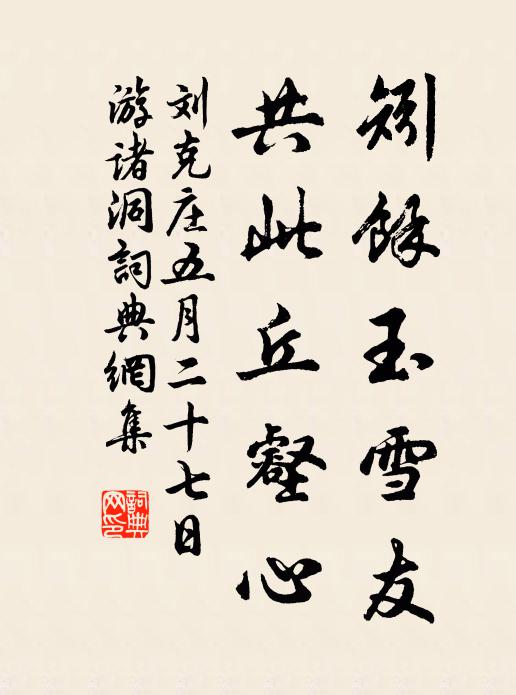 矧餘玉雪友
共此丘壑心
刘克庄五月二十七日
游诸洞詞典網集
詞典
网印